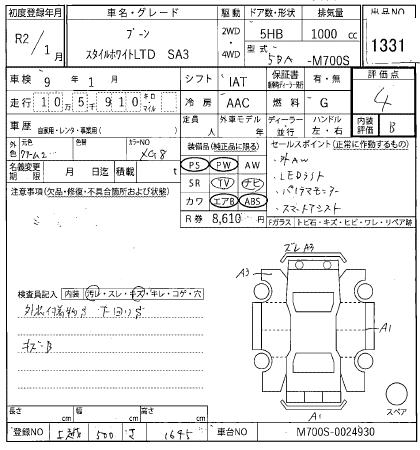 初度登録年月 車名・グレード 駆動 ドア数・形状 排気量 出品NO
R2/1月 ブーン 2WD・4WD 5HB 1000cc 1331
スタイルホワイトLTD SA3 型式 5BA-M700S
車検 9年1月 シフト IAT 保証書 有・無 評価点
走行 10万5910キロ・マイル 冷房 AAC 燃料 G 4
車歴 自家用・レンタ・事業用( ) 定員 人 外車モデル 年 ディーラー・並行 ハンドル 左・右 内装評価 B
外色 元色 色替 カラーNO X08
装備品(純正品に限る) セールスポイント(正常に作動するもの)
PS PW AW ・外AW
名義変更期限 月 日迄 積載 t
SR TV ナビ ・LEDライト
注意事項(欠品・修復・不具合箇所および状態)
カワ エアB ABS ・パノラマモニター
・スマートアシスト
R券 8,610 Fガラス トビ石・キズ・ヒビ・ワレ・リペア跡
ズレA3
A3
検査員記入 内装 汚レ・スレ・キズ・キレ・コゲ・穴
A1
キズB
スペア
長さ cm 幅 cm 高さ cm
A1
登録NO 500 1645 車台NO M700S-0024930